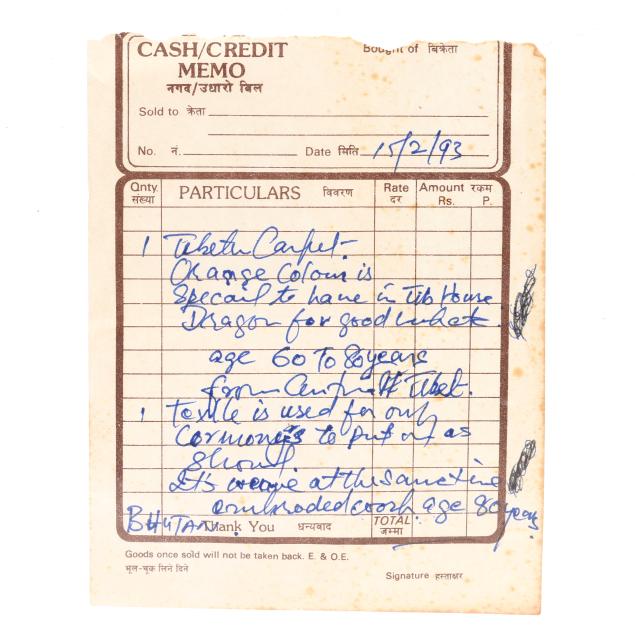 CASH/CREDIT
MEMO
नगद/उधारो बिल
Bought of बिक्रेता
Sold to क्रेता
No. नं. Date मिति 15/2/93
Qnty. संख्या PARTICULARS विवरण Rate दर Amount रकम Rs. P.
1 Tibetn Carpet.
Orange Colour is
Specail to have in Tib House
Dragon for good
age 60 To 80 years
from Tibet.
1 Textle is used for only
to put on as
Showl
It's at the same time
age 80 years
BHUTAN. Thank You धन्यवाद TOTAL जम्मा
Goods once sold will not be taken back. E. & O.E.
भूल-चूक लिने दिने
Signature हस्ताक्षर